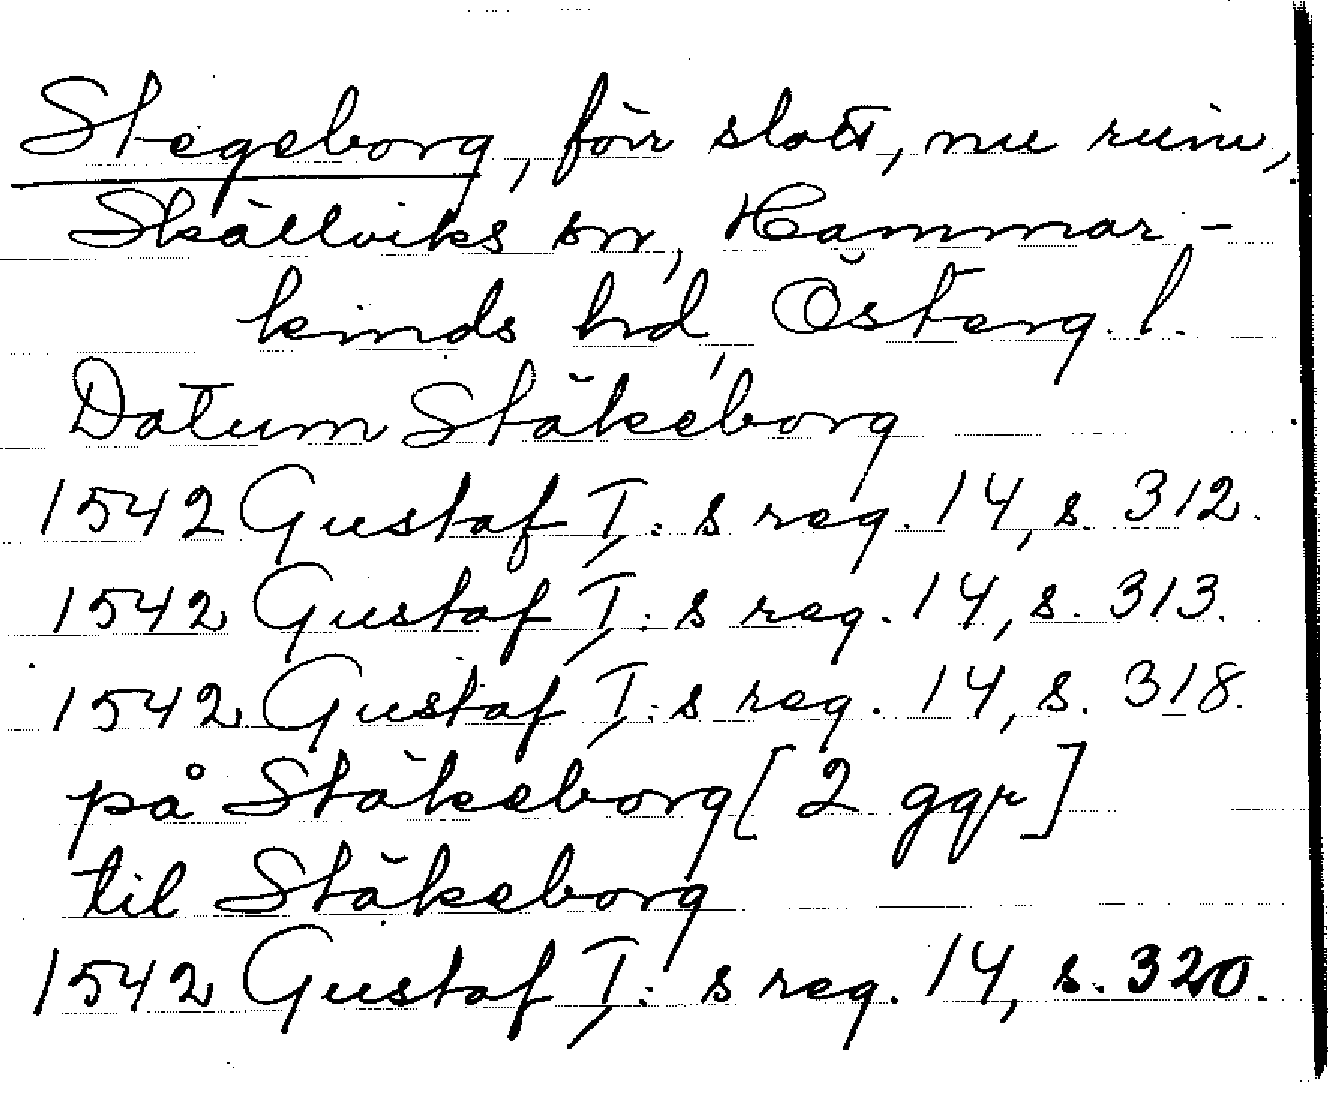 Stegeborg, förr slott, nu ruin,
Skällviks sn, Hammar-
kinds hd, Österg. l.
Datum Stäkeborg
1542 Gustaf I:s reg. 14, s. 312.
1542 Gustaf I:s reg. 14, s. 313.
1542 Gustaf I:s reg. 14, s. 318.
på Stäkeborg [2 ggr]
til Stäkeborg
1542 Gustaf I:s reg. 14, s. 320.